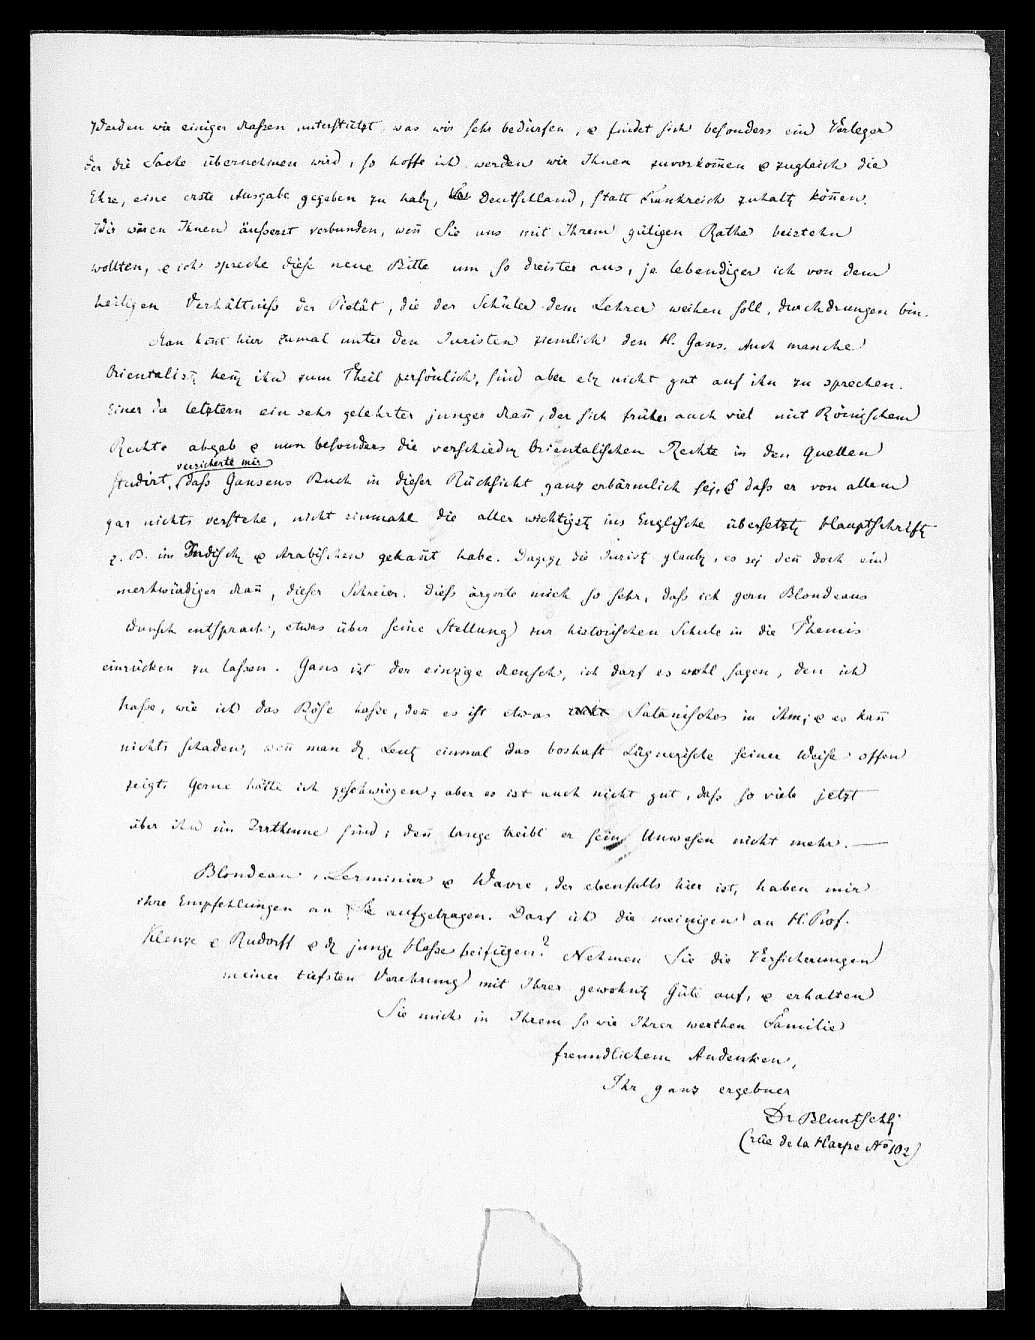 Werden wir einiger Maßen unterstützt, was wir sehr bedürfen, & findet sich besonders ein Verleger
der die Sache übernehmen wird, so hoffe ich, werden wir Ihnen zuvorkom̄en & zugleich die
Ehre, eine erste Ausgabe gegeben zu habn, Deutschland, statt Frankreich zuhaltn kön̄en.
Wir wären Ihnen äußerst verbunden, wen̄ Sie uns mit Ihrem gütigen Rathe beistehn
wollten, & ich spreche diese neue Bitte um so dreister aus, je lebendiger ich von dem
heiligen Verhältniß der Pietät, die der Schüler dem Lehrer weihen soll, durchdrungen bin.
Man hier zumal unter den Juristen ziemlich den H. Gans. Auch manche
Orientalistn ken̄n ihn zum Theil persönlich, sind aber nicht gut auf ihn zu sprechen.
Einer der letztern ein sehr gelehrter junger Man̄, der sich früher auch viel mit Römischem
Rechte abgab & nun besonders die verschiedn Orientalischen Rechte in den Quellen
studirt, versicherte mir daß Gansens Buch in dieser Rücksicht ganz erbärmlich sei, & daß er von allem
gar nichts verstehe, nicht einmahl die aller wichtigstn ins Englische übersetztn Hauptschriftn
z. B. im Indischn & Arabischen gekan̄t habe. Dagegn die Juristn glaubn, es sei den̄ doch ein
merkwürdiger Man̄, dieser Schreier. Dieß ärgerte mich so sehr, daß ich gern Blondeaus
Wunsch entsprach, etwas über seine Stellung zur historischen Schule in die Themis
einrücken zu laßen. Gans ist der einzige Mensch, ich darf es wohl sagen, den ich
haße, wie ich das Böse haße, den̄ es ist etwas Satanisches in ihm; & es kan̄
nichts schaden, wen̄ man dn Leutn einmal das boshaft Lügnerische seiner Weise offen
zeigt. Gerne hätte ich geschwiegen; aber es ist auch nicht gut, daß so viele jetzt
über ihn im Irrthume sind; den̄ lange treibt er sein Unwesen nicht mehr. —
Blondeau, Lerminier & Wavre, der ebenfalls hier ist, haben mir
ihre Empfehlungen an Sie aufgetragen. Darf ich die meinigen an H. Prof.
Klenze & Rudorff & dn jungn Haße beifügen? Nehmen Sie die Versicherungen
meiner tiefsten Verehrung mit Ihrer gewohntn Güte auf, & erhalten
Sie mich in Ihrem so wie Ihrer werthen Familie
freundlichem Andenken,
Ihr ganz ergebner
Dr Bluntschli
(rüe de la Harpe No 102)